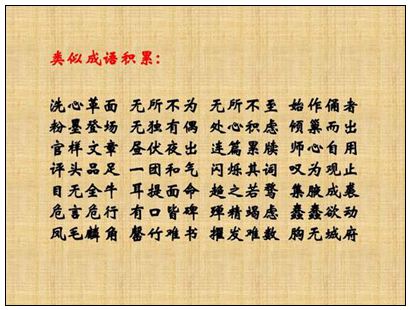 类似成语积累:
洗心革面 无所不为 无所不至 始作俑者
粉墨登场 无独有偶 处心积虑 倾巢而出
官样文章 昼伏夜出 连篇累牍 师心自用
评头品足 一团和气 闪烁其词 叹为观止
目无全牛 耳提面命 趋之若鹜 集腋成裘
危言危行 有口皆碑 殚精竭虑 蠢蠢欲动
凤毛麟角 罄竹难书 擢发难数 胸无城府